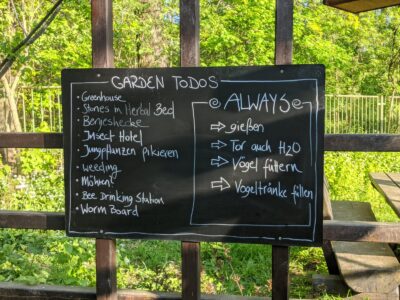 GARDEN TODOS
• Greenhouse
• Stones in Herbal Bed
• Benjeshecke
• Insect Hotel
• Jungpflanzen pikieren
• weeding
• Mähen!
• Bee Drinking Station
• Worm Board
ALWAYS
⇨ gießen
⇨ Tor auch H2O
⇨ Vögel füttern
⇨ Vogeltränke füllen